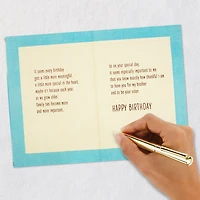 It seems every birthday
gets a little more meaningful,
a little more special in the heart.
Maybe it's because each year,
as we grow older,
family ties become more
and more important...
So on your special day,
it seems especially important to me
that you know exactly how thankful I am
to have you for my brother
and to be your sister.
HAPPY BIRTHDAY